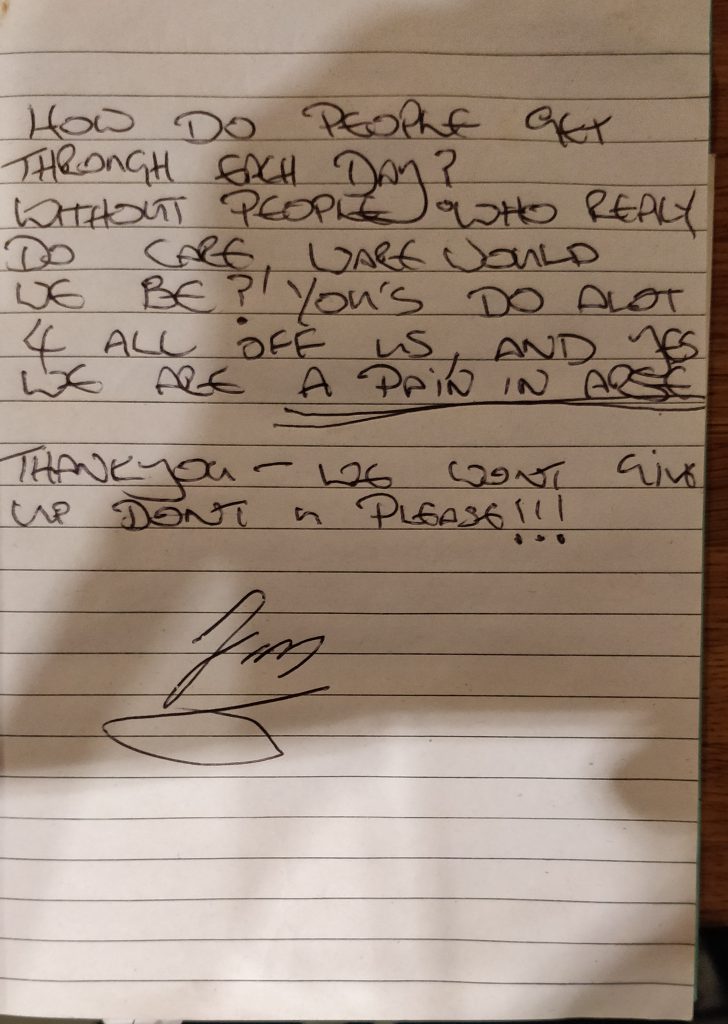 HOW DO PEOPLE GET
THROUGH EACH DAY?
WITHOUT PEOPLE WHO REALY
DO CARE, WARE WOULD
WE BE?! YOU'S DO ALOT
4 ALL OFF US, AND YES
WE ARE A PAIN IN ARSE
THANKYOU - WE WONT GIVE
UP DONT U PLEASE!!!